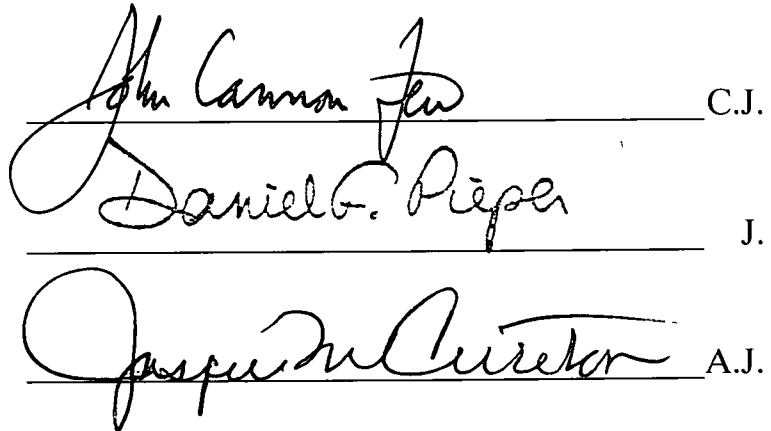 John Cannon Few C.J.
Daniel F. Pieper J.
Jasper M. Cureton A.J.